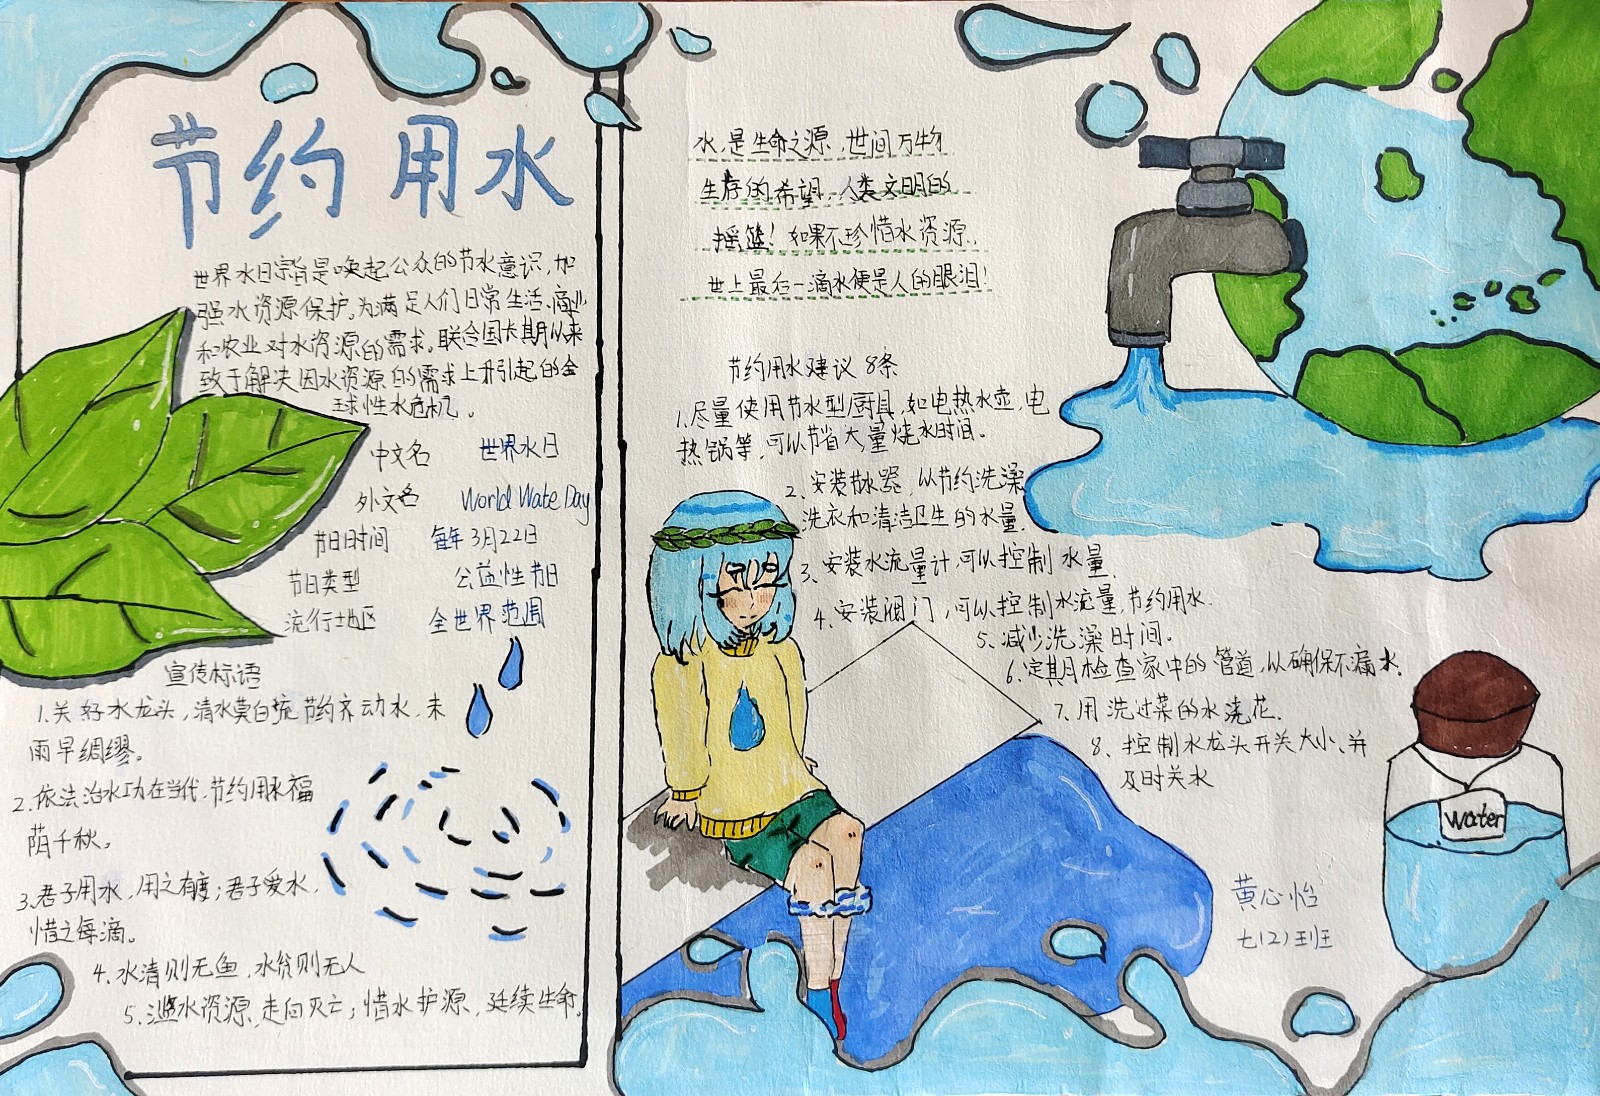 节约用水
世界水日宗旨是唤起公众的节水意识,加
强水资源保护。为满足人们日常生活、商业
和农业对水资源的需求。联合国长期以来
致于解决因水资源的需求上升引起的全
球性水危机。
中文名 世界水日
外文名 World Wate Day
节日时间 每年3月22日
节日类型 公益性节日
流行地区 全世界范围
宣传标语
1.关好水龙头,清水莫白流 节约齐动水,未
雨早绸缪。
2.依法治水功在当代,节约用水福
荫千秋。
3.君子用水,用之有度;君子爱水,
惜之每滴。
4.水清则无鱼,水贫则无人
5.滥水资源,走向灭亡;惜水护源,延续生命。
水,是生命之源,世间万物
生存的希望,人类文明的
摇篮!如果不珍惜水资源,
世上最后一滴水便是人的眼泪!
节约用水建议8条
1.尽量使用节水型厨具,如电热水壶,电
热锅等,可以节省大量烧水时间。
2、安装节水器,以节约洗澡
洗衣和清洁卫生的水量.
3、安装水流量计,可以控制水量.
4、安装阀门,可以控制水流量,节约用水.
5、减少洗澡时间。
6、定期检查家中的管道,以确保不漏水.
7、用洗过菜的水浇花.
8、控制水龙头开关大小、并
及时关水
water
黄心怡
七(2)班